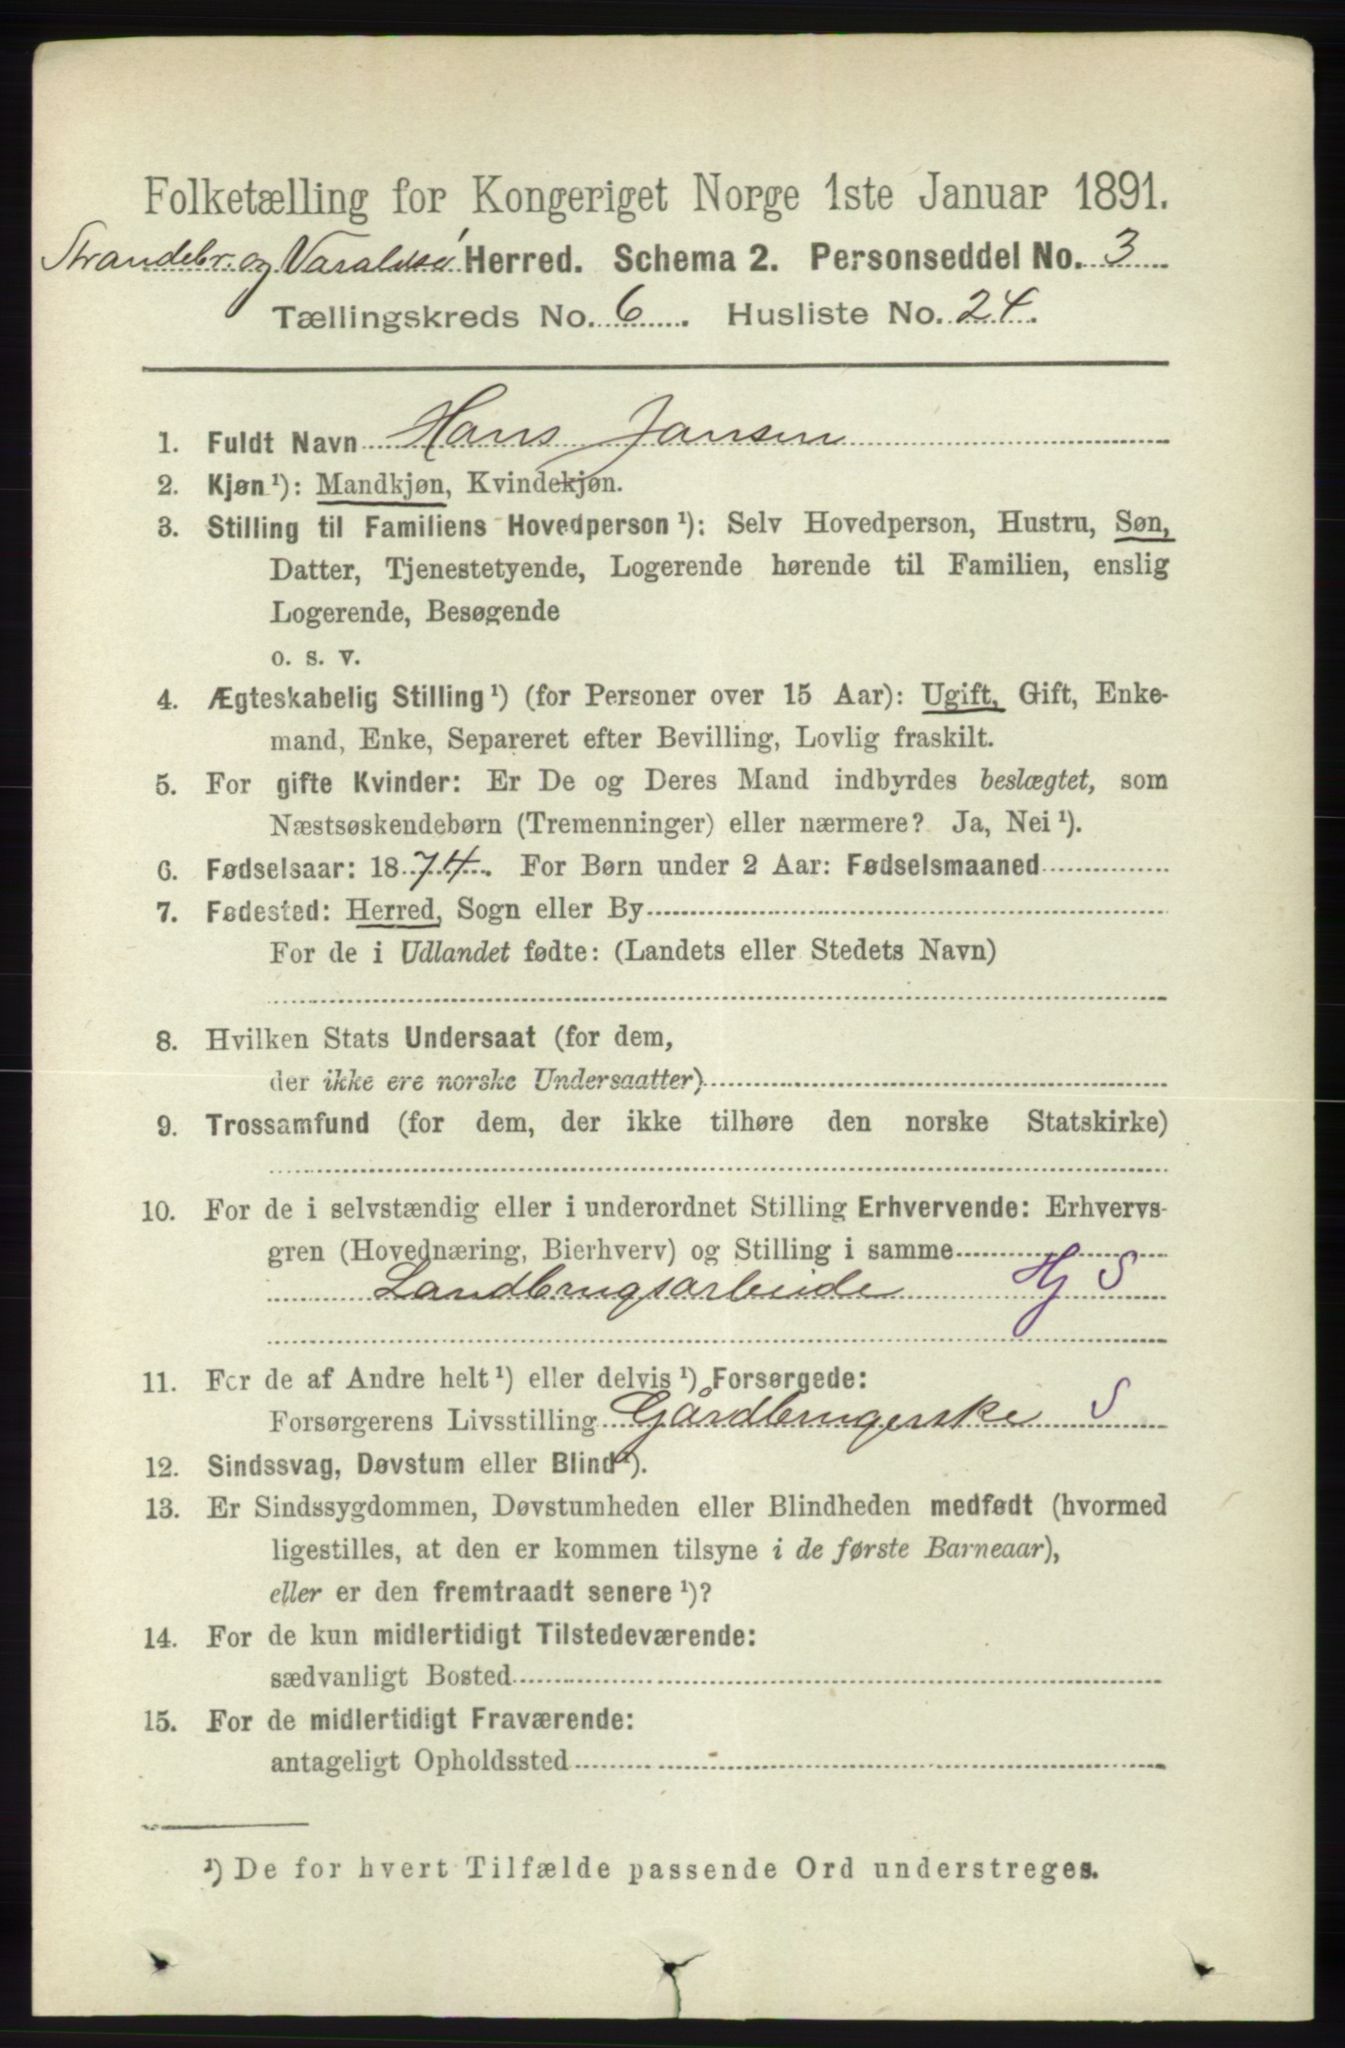 Folketælling for Kongeriget Norge 1ste Januar 1891.
Strandebr. og Varaldsø Herred. Schema 2. Personseddel No. 3
Tællingskreds No. 6. Husliste No. 24.
1. Fuldt Navn Hans Jansen
2. Kjøn ¹): Mandkjøn, Kvindekjøn.
3. Stilling til Familiens Hovedperson ¹): Selv Hovedperson, Hustru, Søn,
Datter, Tjenestetyende, Logerende hørende til Familien, enslig
Logerende, Besøgende
o. s. v.
4. Ægteskabelig Stilling ¹) (for Personer over 15 Aar): Ugift, Gift, Enke-
mand, Enke, Separeret efter Bevilling, Lovlig fraskilt.
5. For gifte Kvinder: Er De og Deres Mand indbyrdes beslægtet, som
Næstsøskendebørn (Tremenninger) eller nærmere? Ja, Nei ¹).
6. Fødselsaar: 1874. For Børn under 2 Aar: Fødselsmaaned
7. Fødested: Herred, Sogn eller By
For de i Udlandet fødte: (Landets eller Stedets Navn)
8. Hvilken Stats Undersaat (for dem,
der ikke ere norske Undersaatter)
9. Trossamfund (for dem, der ikke tilhøre den norske Statskirke)
10. For de i selvstændig eller i underordnet Stilling Erhvervende: Erhvervs-
gren (Hovednæring, Bierhverv) og Stilling i samme
Landbrugsarbeide Hj S
11. For de af Andre helt ¹) eller delvis ¹) Forsørgede:
Forsørgerens Livsstilling Gårdbrugerske S
12. Sindssvag, Døvstum eller Blind ¹).
13. Er Sindssygdommen, Døvstumheden eller Blindheden medfødt (hvormed
ligestilles, at den er kommen tilsyne i de første Barneaar),
eller er den fremtraadt senere ¹)?
14. For de kun midlertidigt Tilstedeværende:
sædvanligt Bosted
15. For de midlertidigt Fraværende:
antageligt Opholdssted
¹) De for hvert Tilfælde passende Ord understreges.